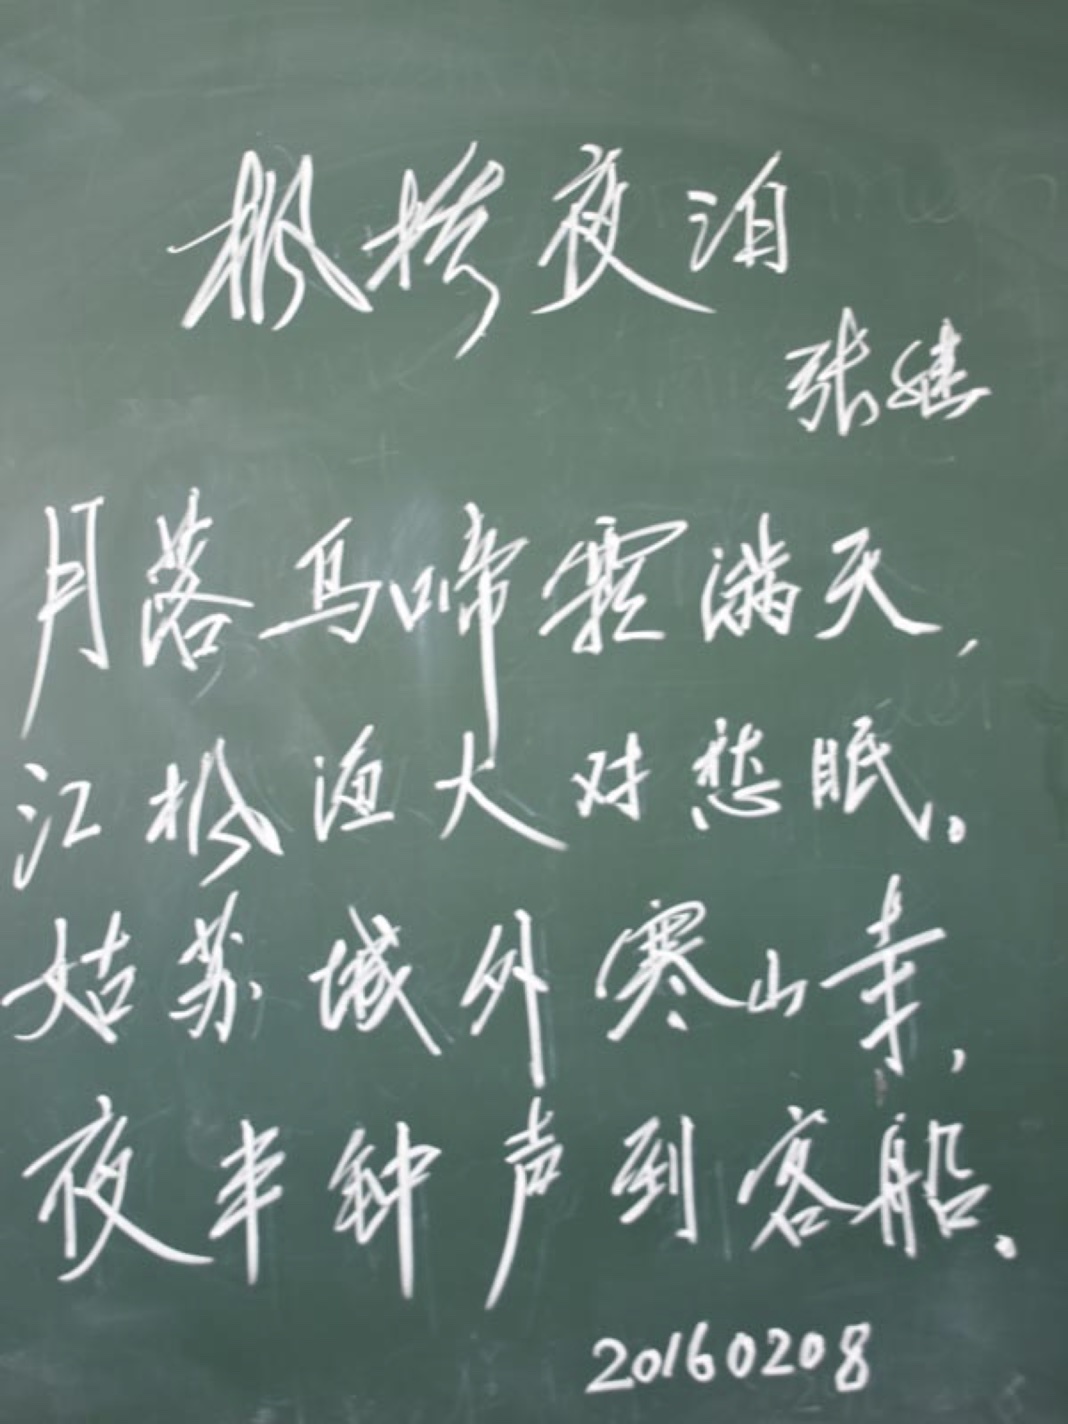 枫桥夜泊
张继
月落乌啼霜满天,
江枫渔火对愁眠。
姑苏城外寒山寺,
夜半钟声到客船.
20160208